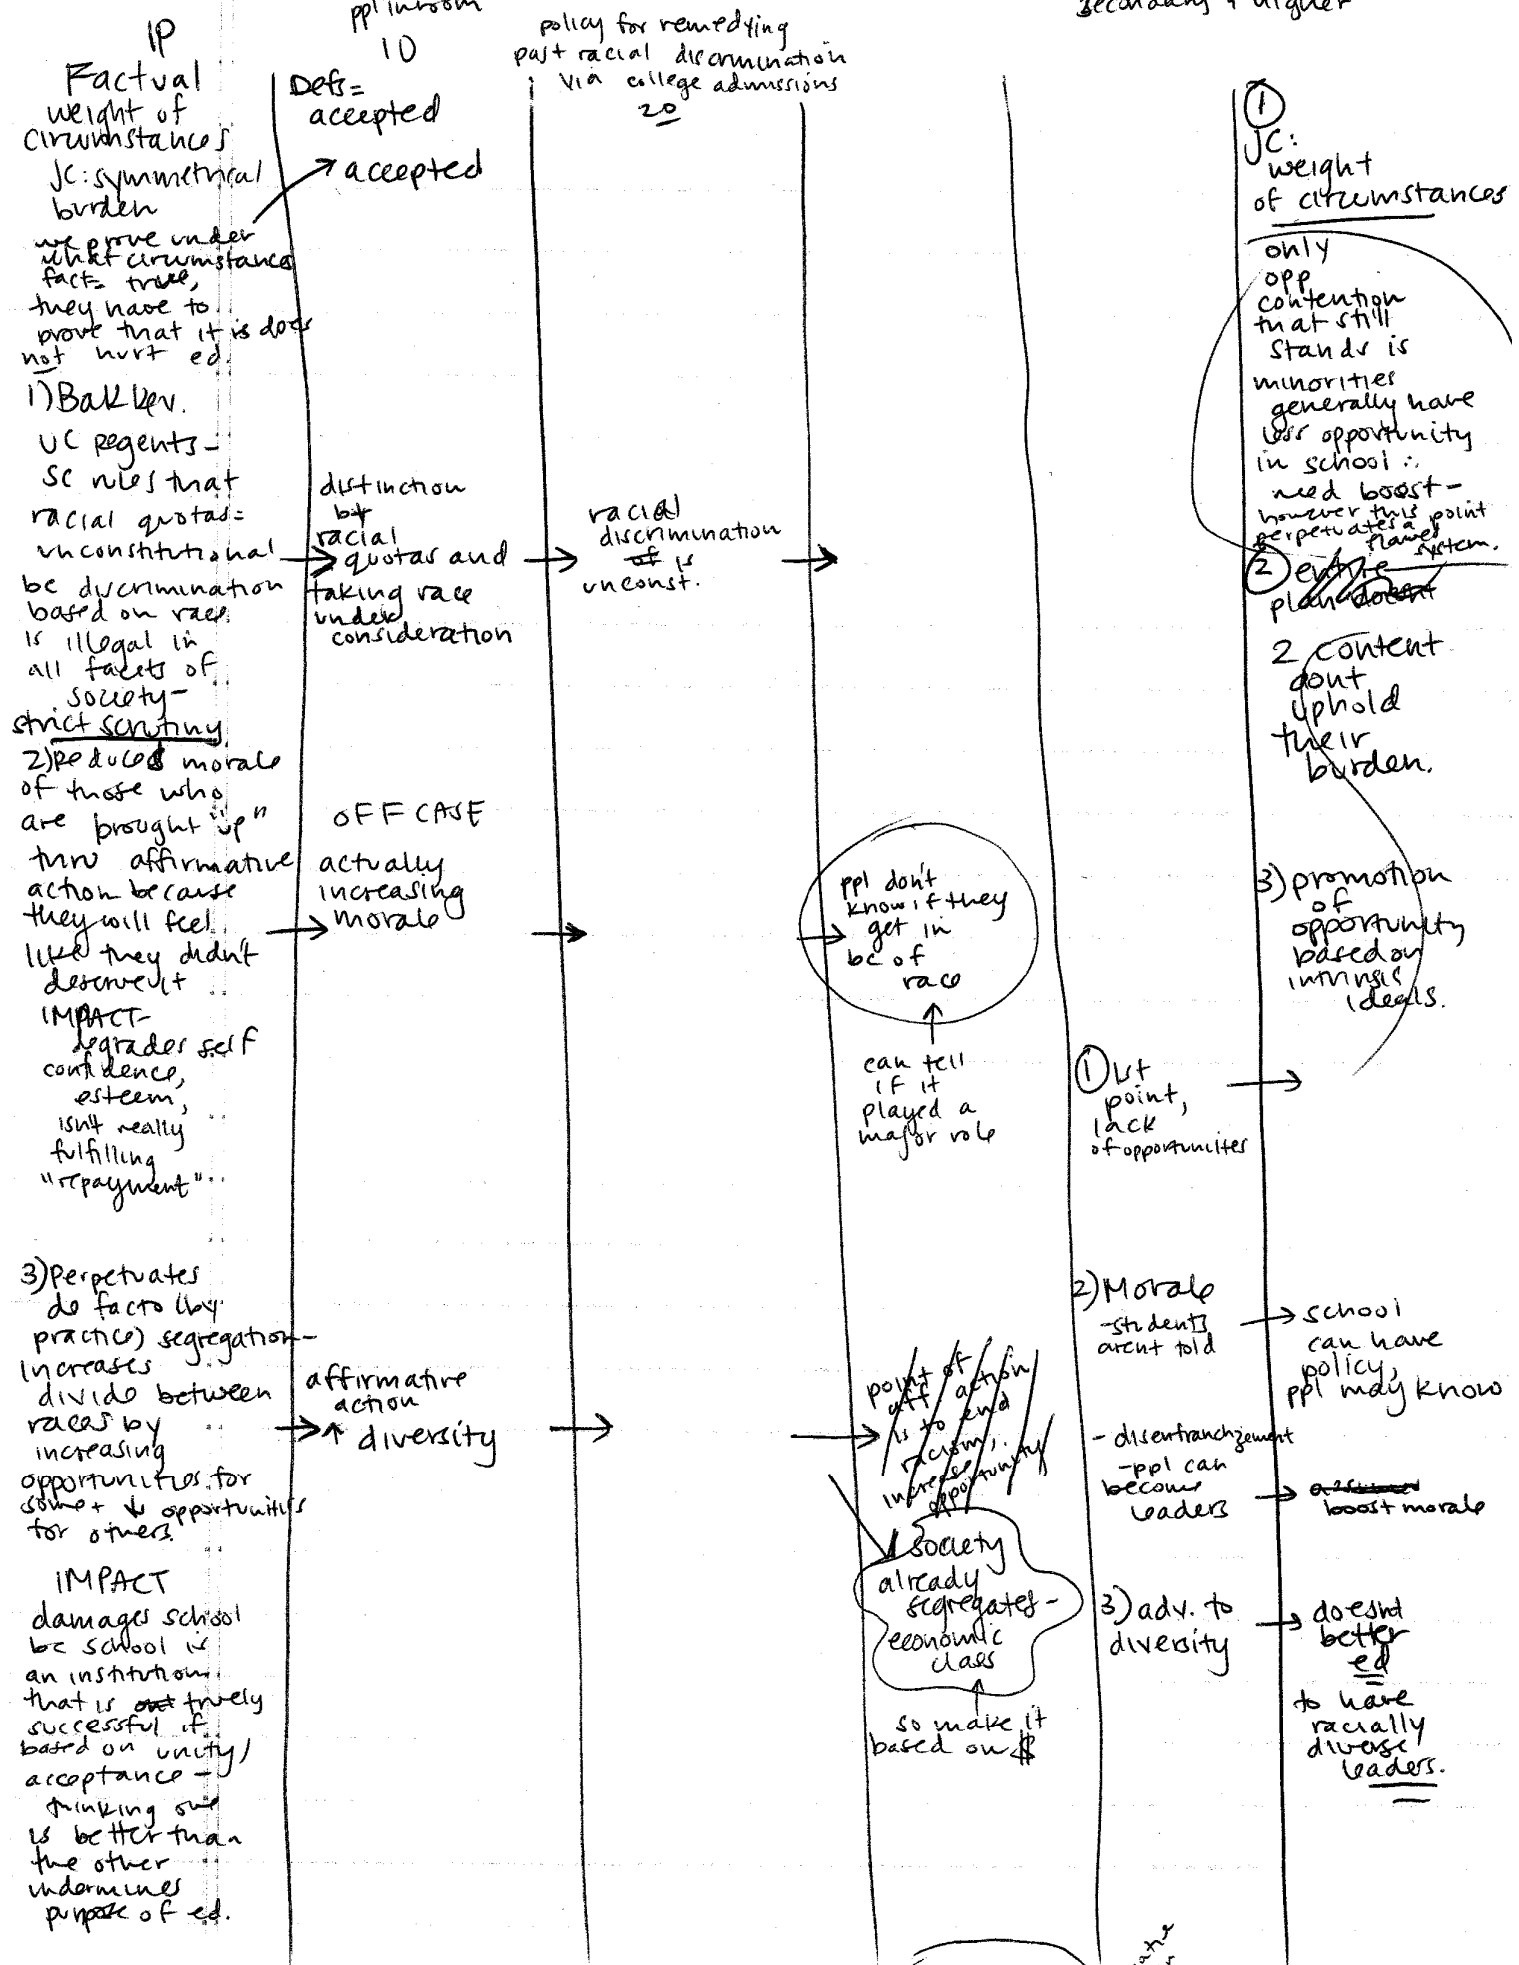 ppl in room
secondary + higher
1P
Factual
weight of
circumstances
JC: symmetrical
burden
we prove under
what circumstances
fact = true,
they have to
prove that it is does
not hurt ed.
1) Bakke v.
UC Regents -
SC rules that
racial quotas =
unconstitutional
bc discrimination
based on race
is illegal in
all facets of
society -
strict scrutiny
2) Reduces morale
of those who
are brought "up"
thru affirmative
action because
they will feel
like they didn't
deserve it
IMPACT -
degrades self
confidence,
esteem,
isn't really
fulfilling
"repayment"
3) Perpetuates
de facto (by
practice) segregation -
increases
divide between
races by
increasing
opportunities for
some + ↓ opportunities
for others.
IMPACT
damages school
bc school is
an institution
that is truely
successful if
based on unity/
acceptance -
thinking one
is better than
the other
undermines
purpose of ed.
10
Defs =
accepted
accepted
distinction
by
racial
quotas and
taking race
under
consideration
OFF CASE
actually
increasing
morale
affirmative
action
↑ diversity
policy for remedying
past racial discrimination
via college admissions
20
racial
discrimination
of is
unconst.
ppl don't
know if they
get in
bc of
race
can tell
if it
played a
major role
point of
aff action
is to end
racism,
increase
opportunity
society
already
segregates -
economic
class
so make it
based on $
① 1st
point,
lack
of opportunities
2) Morale
- students
arent told
- disenfranchizement
- ppl can
become
leaders
3) adv. to
diversity
①
JC:
weight
of circumstances
only
opp
contention
that still
stands is
minorities
generally have
less opportunity
in school ∴
need boost -
however this point
perpetuates a
flawed
system.
② entire
plan doesnt
2 content
dont
uphold
their
burden.
3) promotion
of
opportunity
based on
intrinsic
ideals.
school
can have
policy,
ppl may know
boost morale
doesnt
better
ed
to have
racially
diverse
leaders.